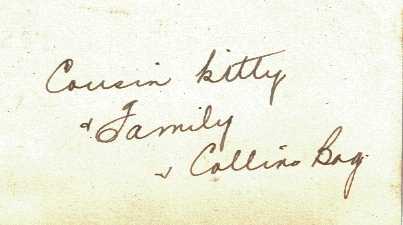 Cousin Kitty
& Family
Collins Bay